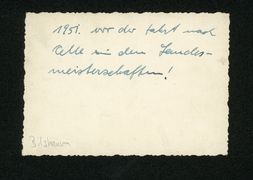 1951. vor der Fahrt nach
Celle zu den Landes-
meisterschaften!